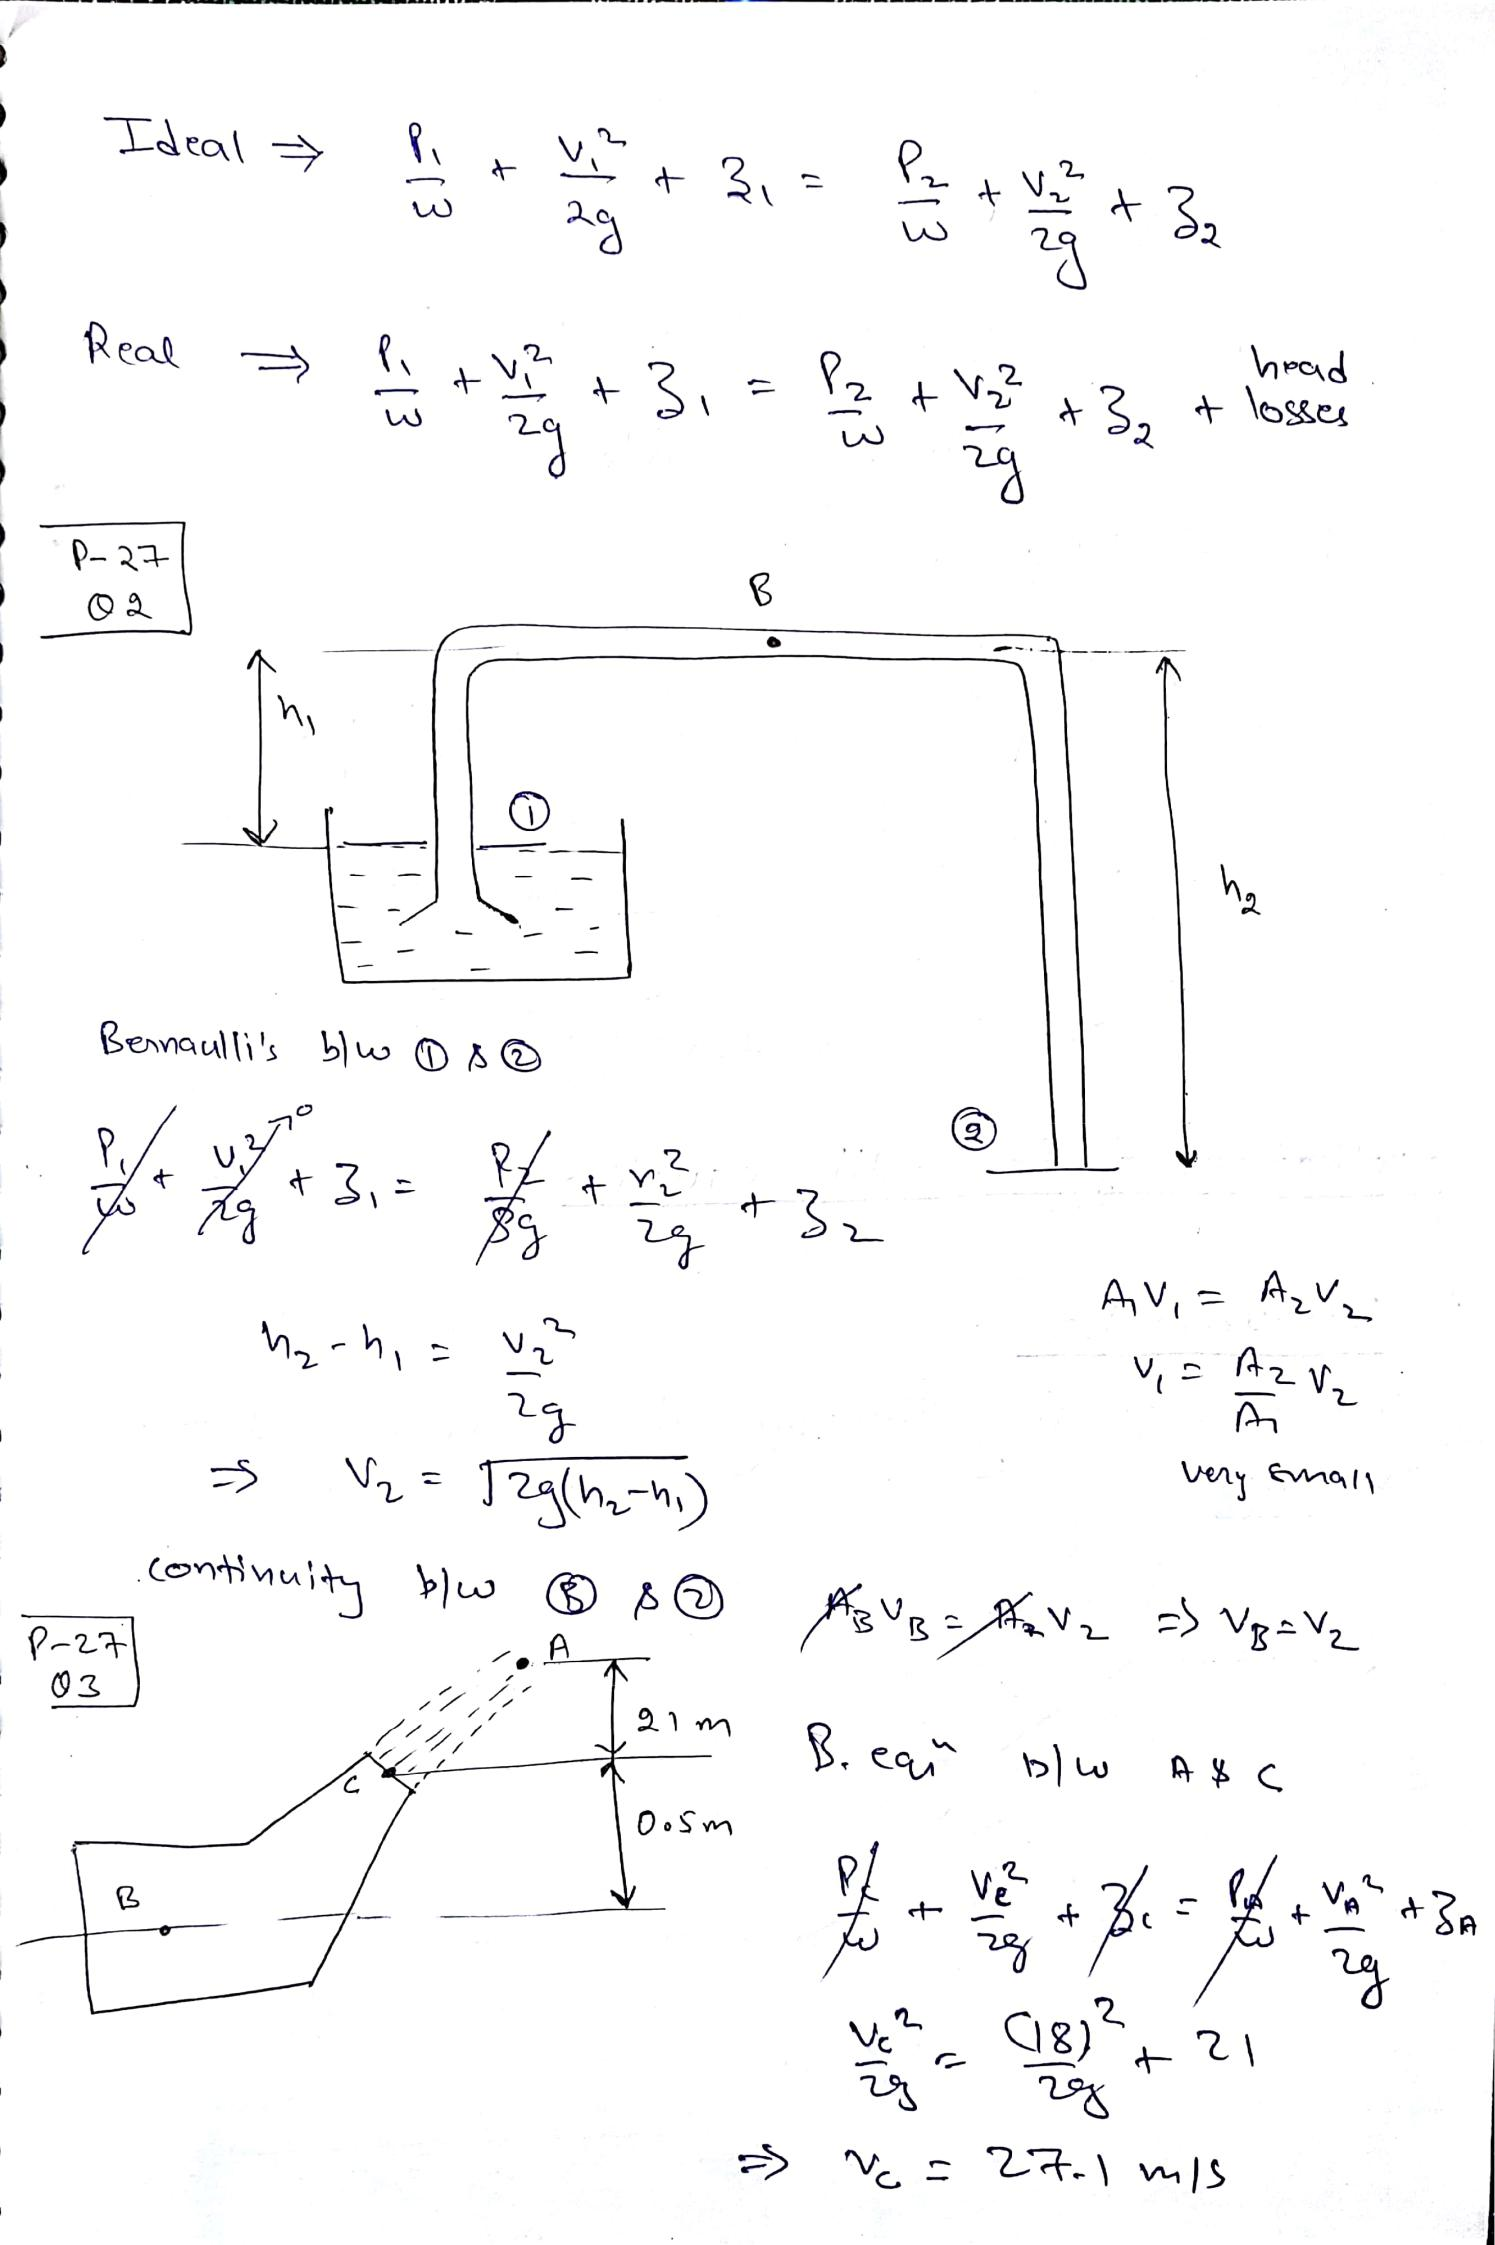 Ideal ⇒ P₁/w + V₁²/2g + z₁ = P₂/w + V₂²/2g + z₂
Real ⇒ P₁/w + V₁²/2g + z₁ = P₂/w + V₂²/2g + z₂ + head losses
P-27
Q2
B
h₁
①
h₂
②
Bernaulli's b/w ① & ②
P₁/w + V₁²/2g → 0 + z₁ = P₂/ρg + V₂²/2g + z₂
A₁V₁ = A₂V₂
h₂-h₁ = V₂²/2g
V₁ = A₂/A₁ V₂
very small
⇒ V₂ = √2g(h₂-h₁)
continuity b/w Ⓑ & ② A_B V_B = A₂ V₂ ⇒ V_B = V₂
P-27
Q3
A
21 m
C
0.5m
B
B. eqⁿ b/w A & C
P_C/w + V_C²/2g + z_C = P_A/w + V_A²/2g + z_A
V_C²/2g = (18)²/2g + 21
⇒ V_C = 27.1 m/s